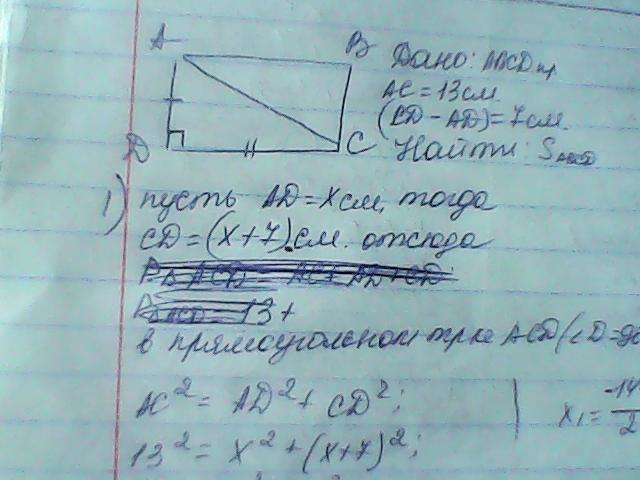 A
B
D
C
Дано: ABCD пр
AC = 13 см.
(CD - AD) = 7 см.
Найти: S ABCD
1) пусть AD = x см, тогда
CD = (x+7) см. отсюда
13 +
в прямоугольном тр-ке ACD (∠D = 90
AC² = AD² + CD²;
13² = x² + (x+7)²;
x₁ = -14
2